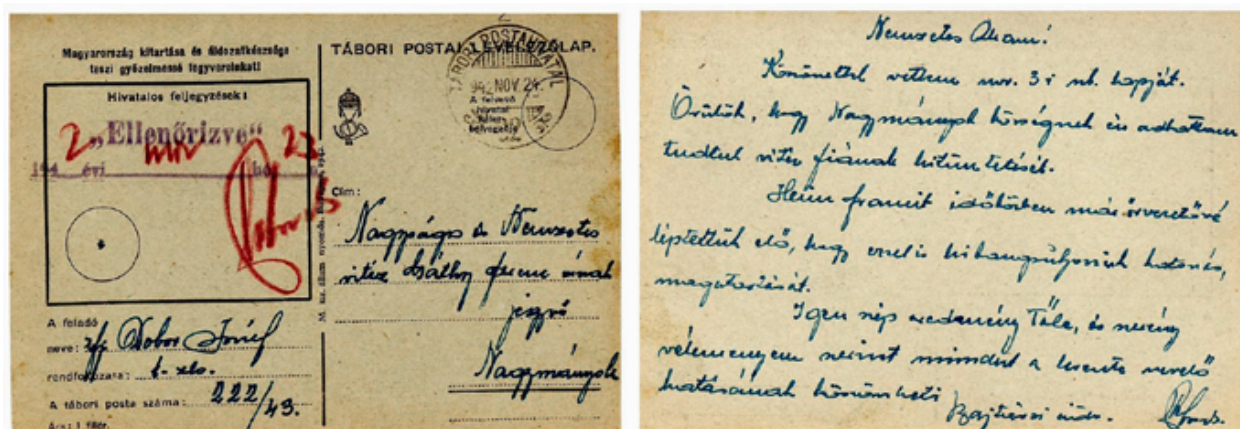 Magyarország kitartása és áldozatkészsége
teszi győzelmessé fegyvereinket!
Hivatalos feljegyzések:
2 „Ellenőrizve"
194 évi nov hó 23
A feladó
neve: Dobor József
rendfokozata:
A tábori posta száma: 222/43.
Ára: 1 fillér.
TÁBORI POSTAI LEVELEZŐLAP.
TÁBORI POSTAHIVATAL
942 NOV 24.
A felvevő
hivatal
bélyegzője
Cím:
Nagyságos és Nemzetes
vitéz Ferenc úrnak
jegyző
Nagymányok
Nemzetes Uram!
Köszönettel vettem nov. 3-i lapját.
Örülök, hogy Nagymányok községnek én adhattam
tudtul vitéz fiának kitüntetését.
Heim időközben már őrvezetővé
léptettük elő, hogy ezzel is katonás,
magatartását.
Igen szép eredmény Tőle, és szerény
véleményem szerint mindezt a levente nevelő
hatásának köszönheti
Bajtársi üdv.